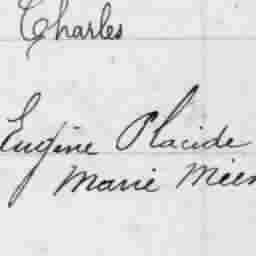 Charles
Eugène Placide
Marie